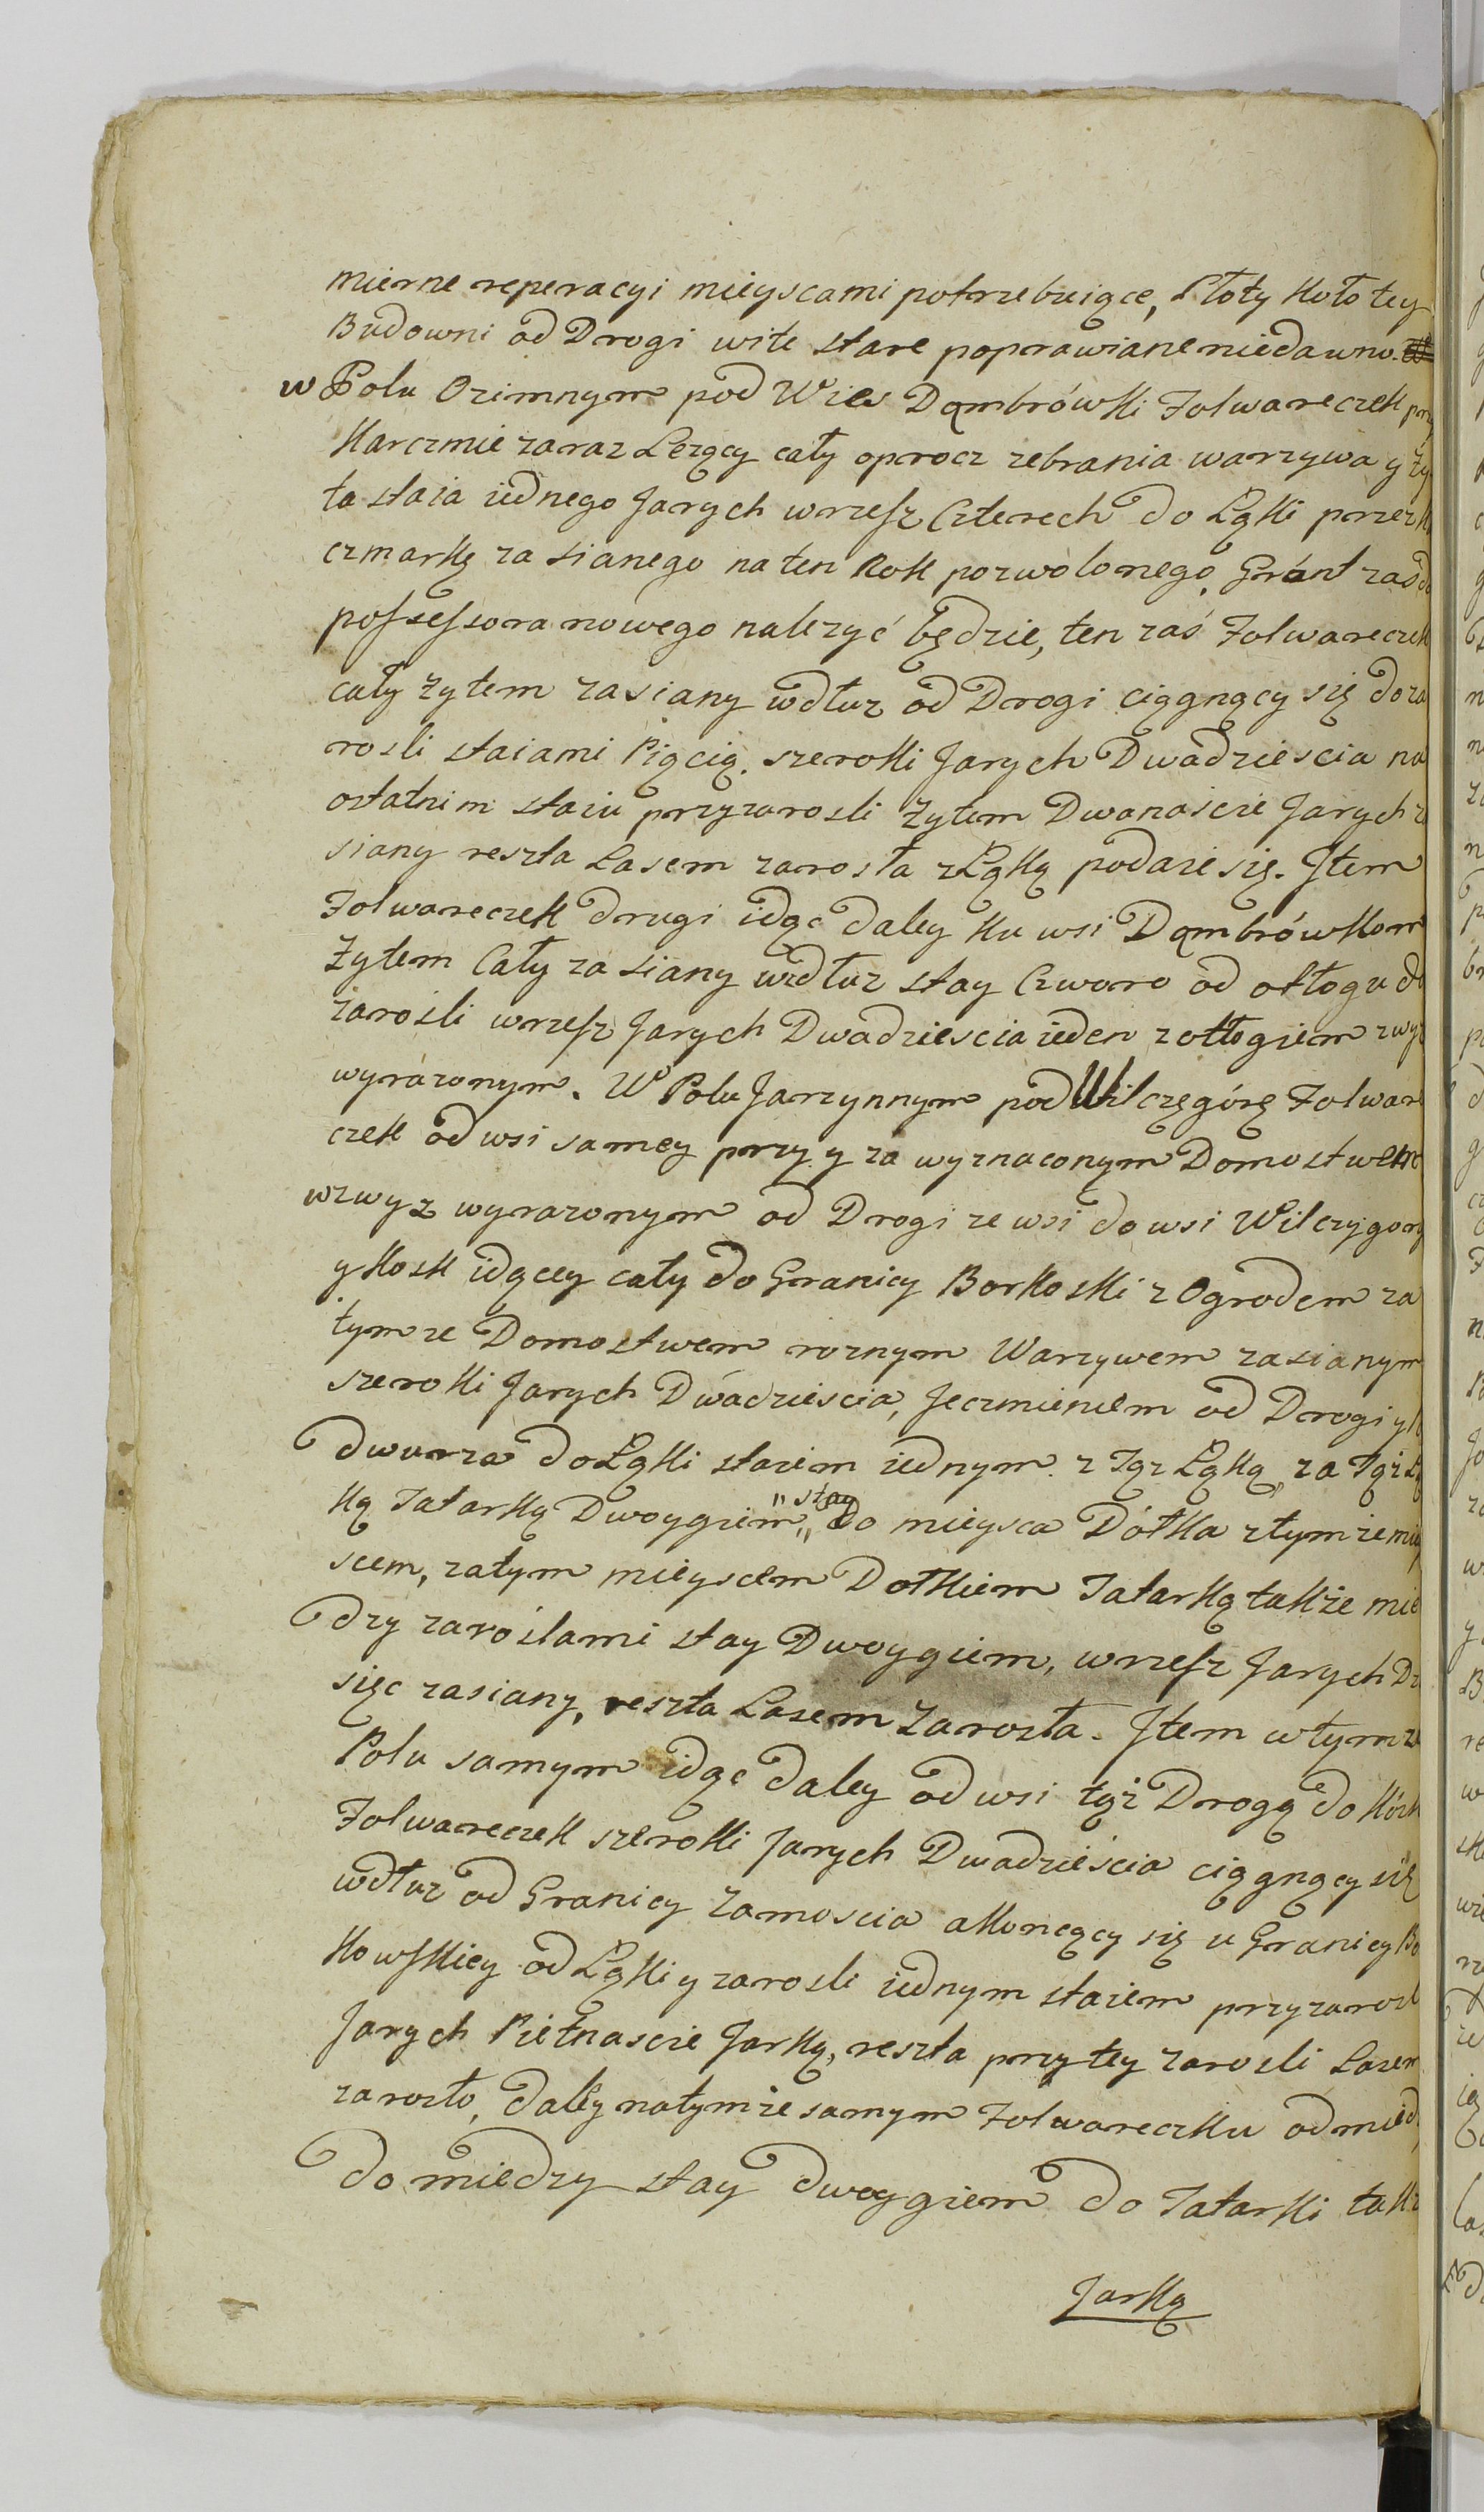 mierne reperacyi mieyscami potrzebuiące, Płoty koło tey
Budowni od Drogi wite stare poprawiane niedawno.
w Polu Ozimnym pod Wies Dąmbrówki Folwareczek prz
Karczmie zaraz Leżący cały oprocz zebrania warzywa y ży
ta staia iednego Jarych wrzesz Czterech do Łąki przez k
czmarkę zasianego na ten Rok pozwolonego, Gránt zaś d
possessora nowego należyć będzie, ten zaś Folwareczek
cały żytem zasiany wdłuz od Drogi ciągnący się do za
rosli staiami Pięcią, szeroki Jarych Dwadziescia na
ostatnim staiu przy zarosli Zytem Dwanaście Jarych z
siany reszta Lasem zarosła z Łąką podaie się. Jtem
Folwareczek drugi idąc daley ku wsi Dąmbrówkom
Żytem Cały zasiany wzdłuz stay Czworo od otłogu do
zarośli wrzesz Jarych Dwadziescia ieden z otłogiem zwyż
wyrázonym. W Polu Jarzynnym pod Wilczęgórę Folwar
czek od wsi samey przy y za wyznaconym Domostwem
wzwyz wyrazonym od Drogi ze wsi do wsi Wilczygory
y kosk idącey cały do Granicy Borkoski z Ogrodem za
tymze Domostwem roznym Warzywem zasianym
szeroki Jarych Dwadzieścia, Jeczmieniem od Drogi y k
dwurza do Łąki staiem iednym z Tąz Łąką, za Tąż Łą
ką Tatarką Dwoygiem "stay" do mieysca Dółka z tymże miey
scem, zatym mieyscem Dołkiem Tatarką także mie
dzy zaroślami stay Dwoygiem, wrzesz Jarych Dz
sięc zasiany, reszta Lasem Zarosła. Jtem w tymze
Polu samym idąc daley od wsi tąż Drogą do kosk
Folwareczek szeroki Jarych Dwadzieścia ciągnący się
wdłuz od Granicy Zamoscia a konczący się u Granicy Bo
kowskiey od Łąki y zarosli iednym staiem przy zarosl
Jarych Pietnascie Jarką, reszta przy tey zarosli Lasem
zarosło, daley natymże samym Folwareczku od mied
do miedzy stay dwoygiem do Tatarki takż
Jarką